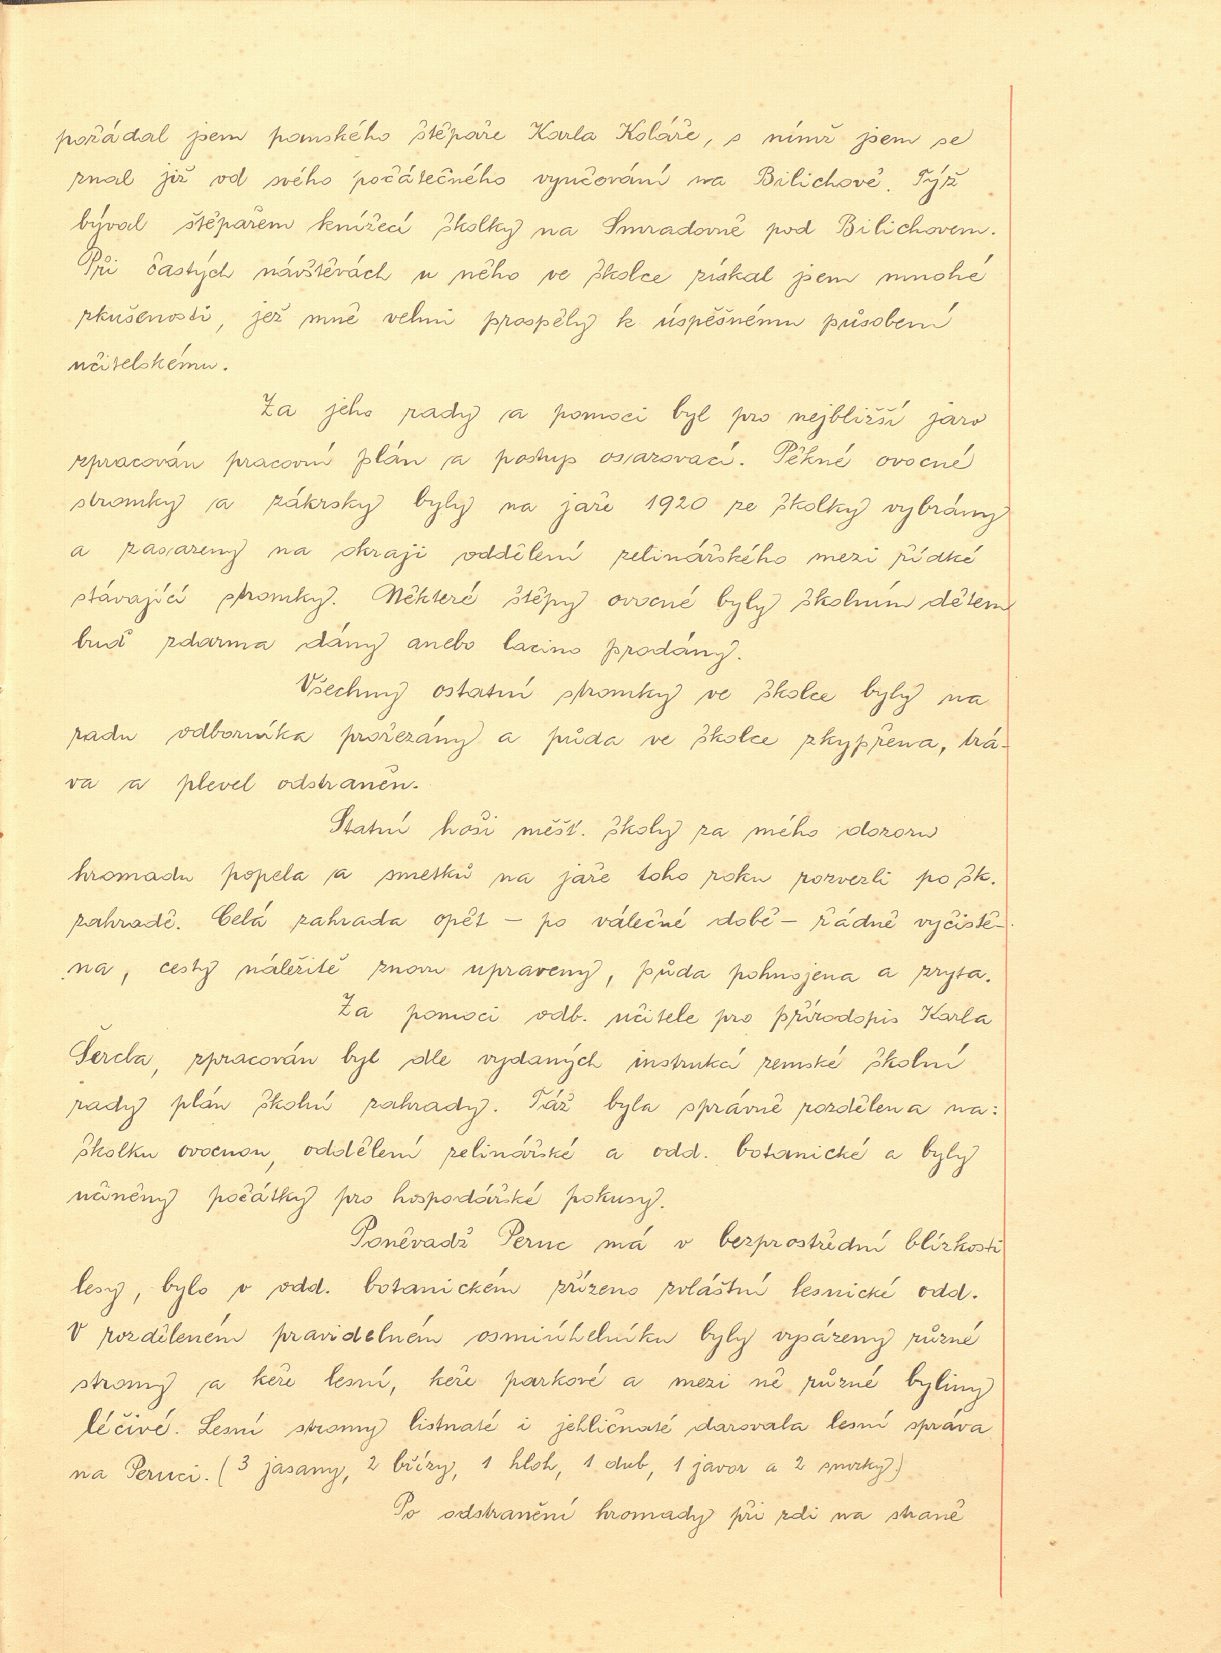 požádal jsem panského štěpaře Karla Koláře, s nímž jsem se
znal již od svého počátečného vyučování na Bilichově. Týž
býval štěpařem knížecí školky na Smradovně pod Bilichovem.
Při častých návštěvách u něho ve školce získal jsem mnohé
zkušenosti, jež mně velmi prospěly k úspěšnému působení
učitelskému.
Za jeho rady a pomoci byl pro nejbližší jaro
zpracován pracovní plán a postup osazovací. Pěkné ovocné
stromky a zákrsky byly na jaře 1920 ze školky vybrány
a zasazeny na okraji oddělení zelinářského mezi řídké
stávající stromky. Některé štěpy ovocné byly školním dětem
buď zdarma dány anebo lacino prodány.
Všechny ostatní stromky ve školce byly na
radu odborníka prořezány a půda ve školce zkypřena, trá-
va a plevel odstraněn.
Statní hoši měšť. školy za mého dozoru
hromadu popela a smetků na jaře toho roku rozvezli po šk.
zahradě. Celá zahrada opět – po válečné době – řádně vyčistě-
na, cesty náležitě znovu upraveny, půda pohnojena a zryta.
Za pomoci odb. učitele pro přírodopis Karla
Šercla, zpracován byl dle vydaných instrukcí zemské školní
rady plán školní zahrady. Táž byla správně rozdělena na:
školku ovocnou, oddělení zelinářské a odd. botanické a byly
učiněny počátky pro hospodářské pokusy.
Poněvadž Peruc má v bezprostřední blízkosti
lesy, bylo v odd. botanickém zřízeno zvláštní lesnické odd.
V rozděleném pravidelném osmiúhelníku byly vysázeny různé
stromy a keře lesní, keře parkové a mezi ně různé byliny
léčivé. Lesní stromy listnaté i jehličnaté darovala lesní správa
na Peruci. (3 jasany, 2 břízy, 1 hloh, 1 dub, 1 javor a 2 smrky)
Po odstranění hromady při zdi na straně